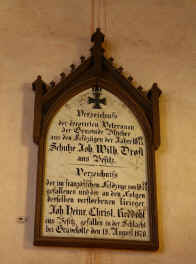 Verzeichniss
der decorirten Veteranen
der Gemeinde Bücher
aus den Feldzügen der Jahre 18
Schulze Joh. Wilh. Trost
aus Besitz.
Verzeichniss
der im französischen Feldzuge von 18
gefallenen und der an den Folgen
derselben verstorbenen Krieger
Joh. Heinr. Christ. Reddohl
aus Besitz, gefallen in der Schlacht
bei Gravelotte den 18. August 1870